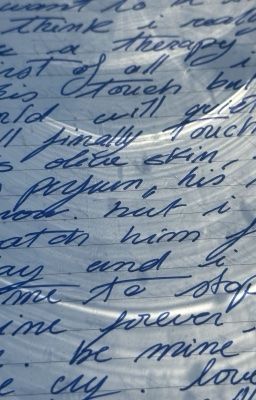 want to
think i really
a therapy
first of all i
his touch but
world will quiet
ll finally touch
s olive skin,
perfum, his
now. but i
watch him f
ay and i
me to stop
mine forever
. be mine
e cry. love